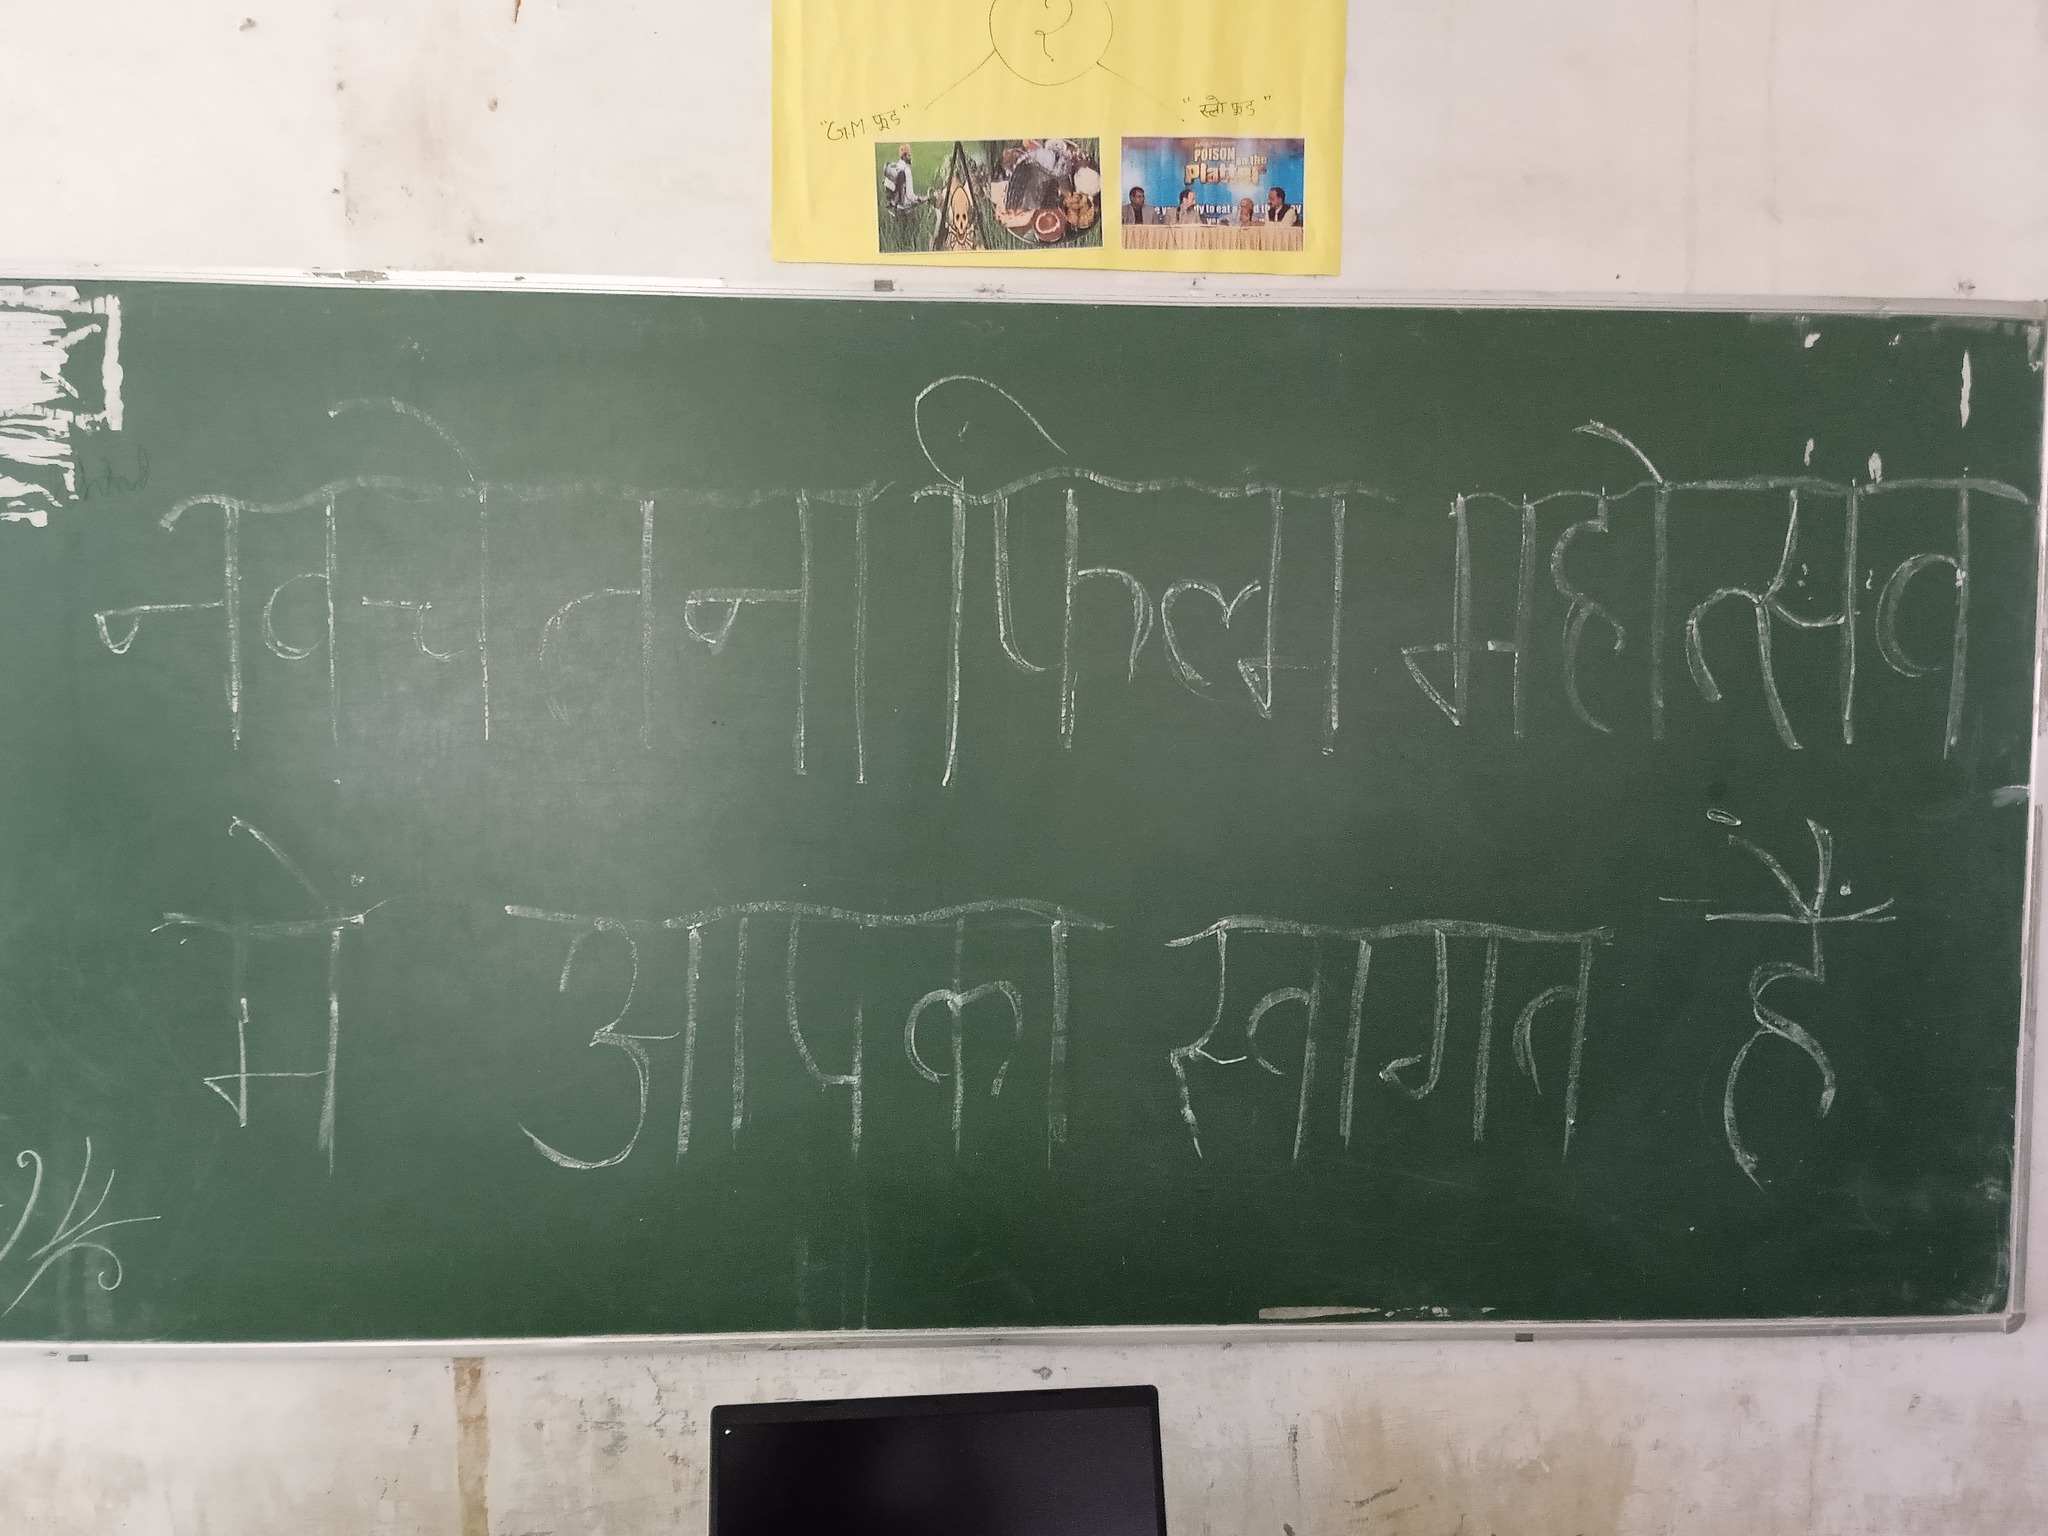 २
"G.M फूड"
"स्लो फूड"
POISON
on the
Platter
नवचेतना फिल्म महोत्सव
में आपका स्वागत हैं